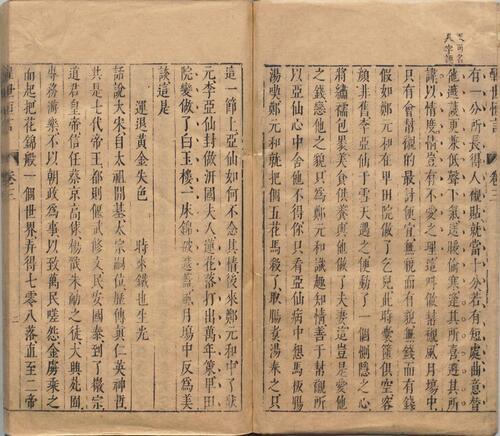 有一分所長得人襯貼就當十分若有短處曲意替
他遮護更兼低聲下氣送暖偷寒逢其所喜避其所
諱以情度情豈有不愛之理這叫做幫襯風月場中
只有會幫襯的最討便宜無貌而有貌無錢而有錢
假如鄭元和在卑田院做了乞兒此時囊篋俱空容
顏非舊李亞仙于雪天遇之便動了一個惻隱之心
將繡襦包裹美食供養與他做了夫妻這豈是愛他
之錢戀他之貌只為鄭元和識趣知情善于幫襯所
以亞仙心中舍他不得你只看亞仙病中想馬板腸
湯喫鄭元和就把個五花馬殺了取腸煮湯奉之只
這一節上亞仙如何不念其情後來鄭元和中了狀
元李亞仙封做汧國夫人蓮花落打出萬年策卑田
院變做了白玉樓一床錦被遮蓋風月場中反為美
談這是
運退黃金失色　時來鐵也生光
話說大宋自太祖開基太宗嗣位歷傳真仁英神哲
共是七代帝王都則偃武修文民安國泰到了徽宗
道君皇帝信任蔡京高俅楊戩朱勔之徒大興苑囿
專務游樂不以朝政為事以致萬民嗟怨金虜乘之
而起把花錦般一個世界弄得七零八落直至二帝
卷三
二